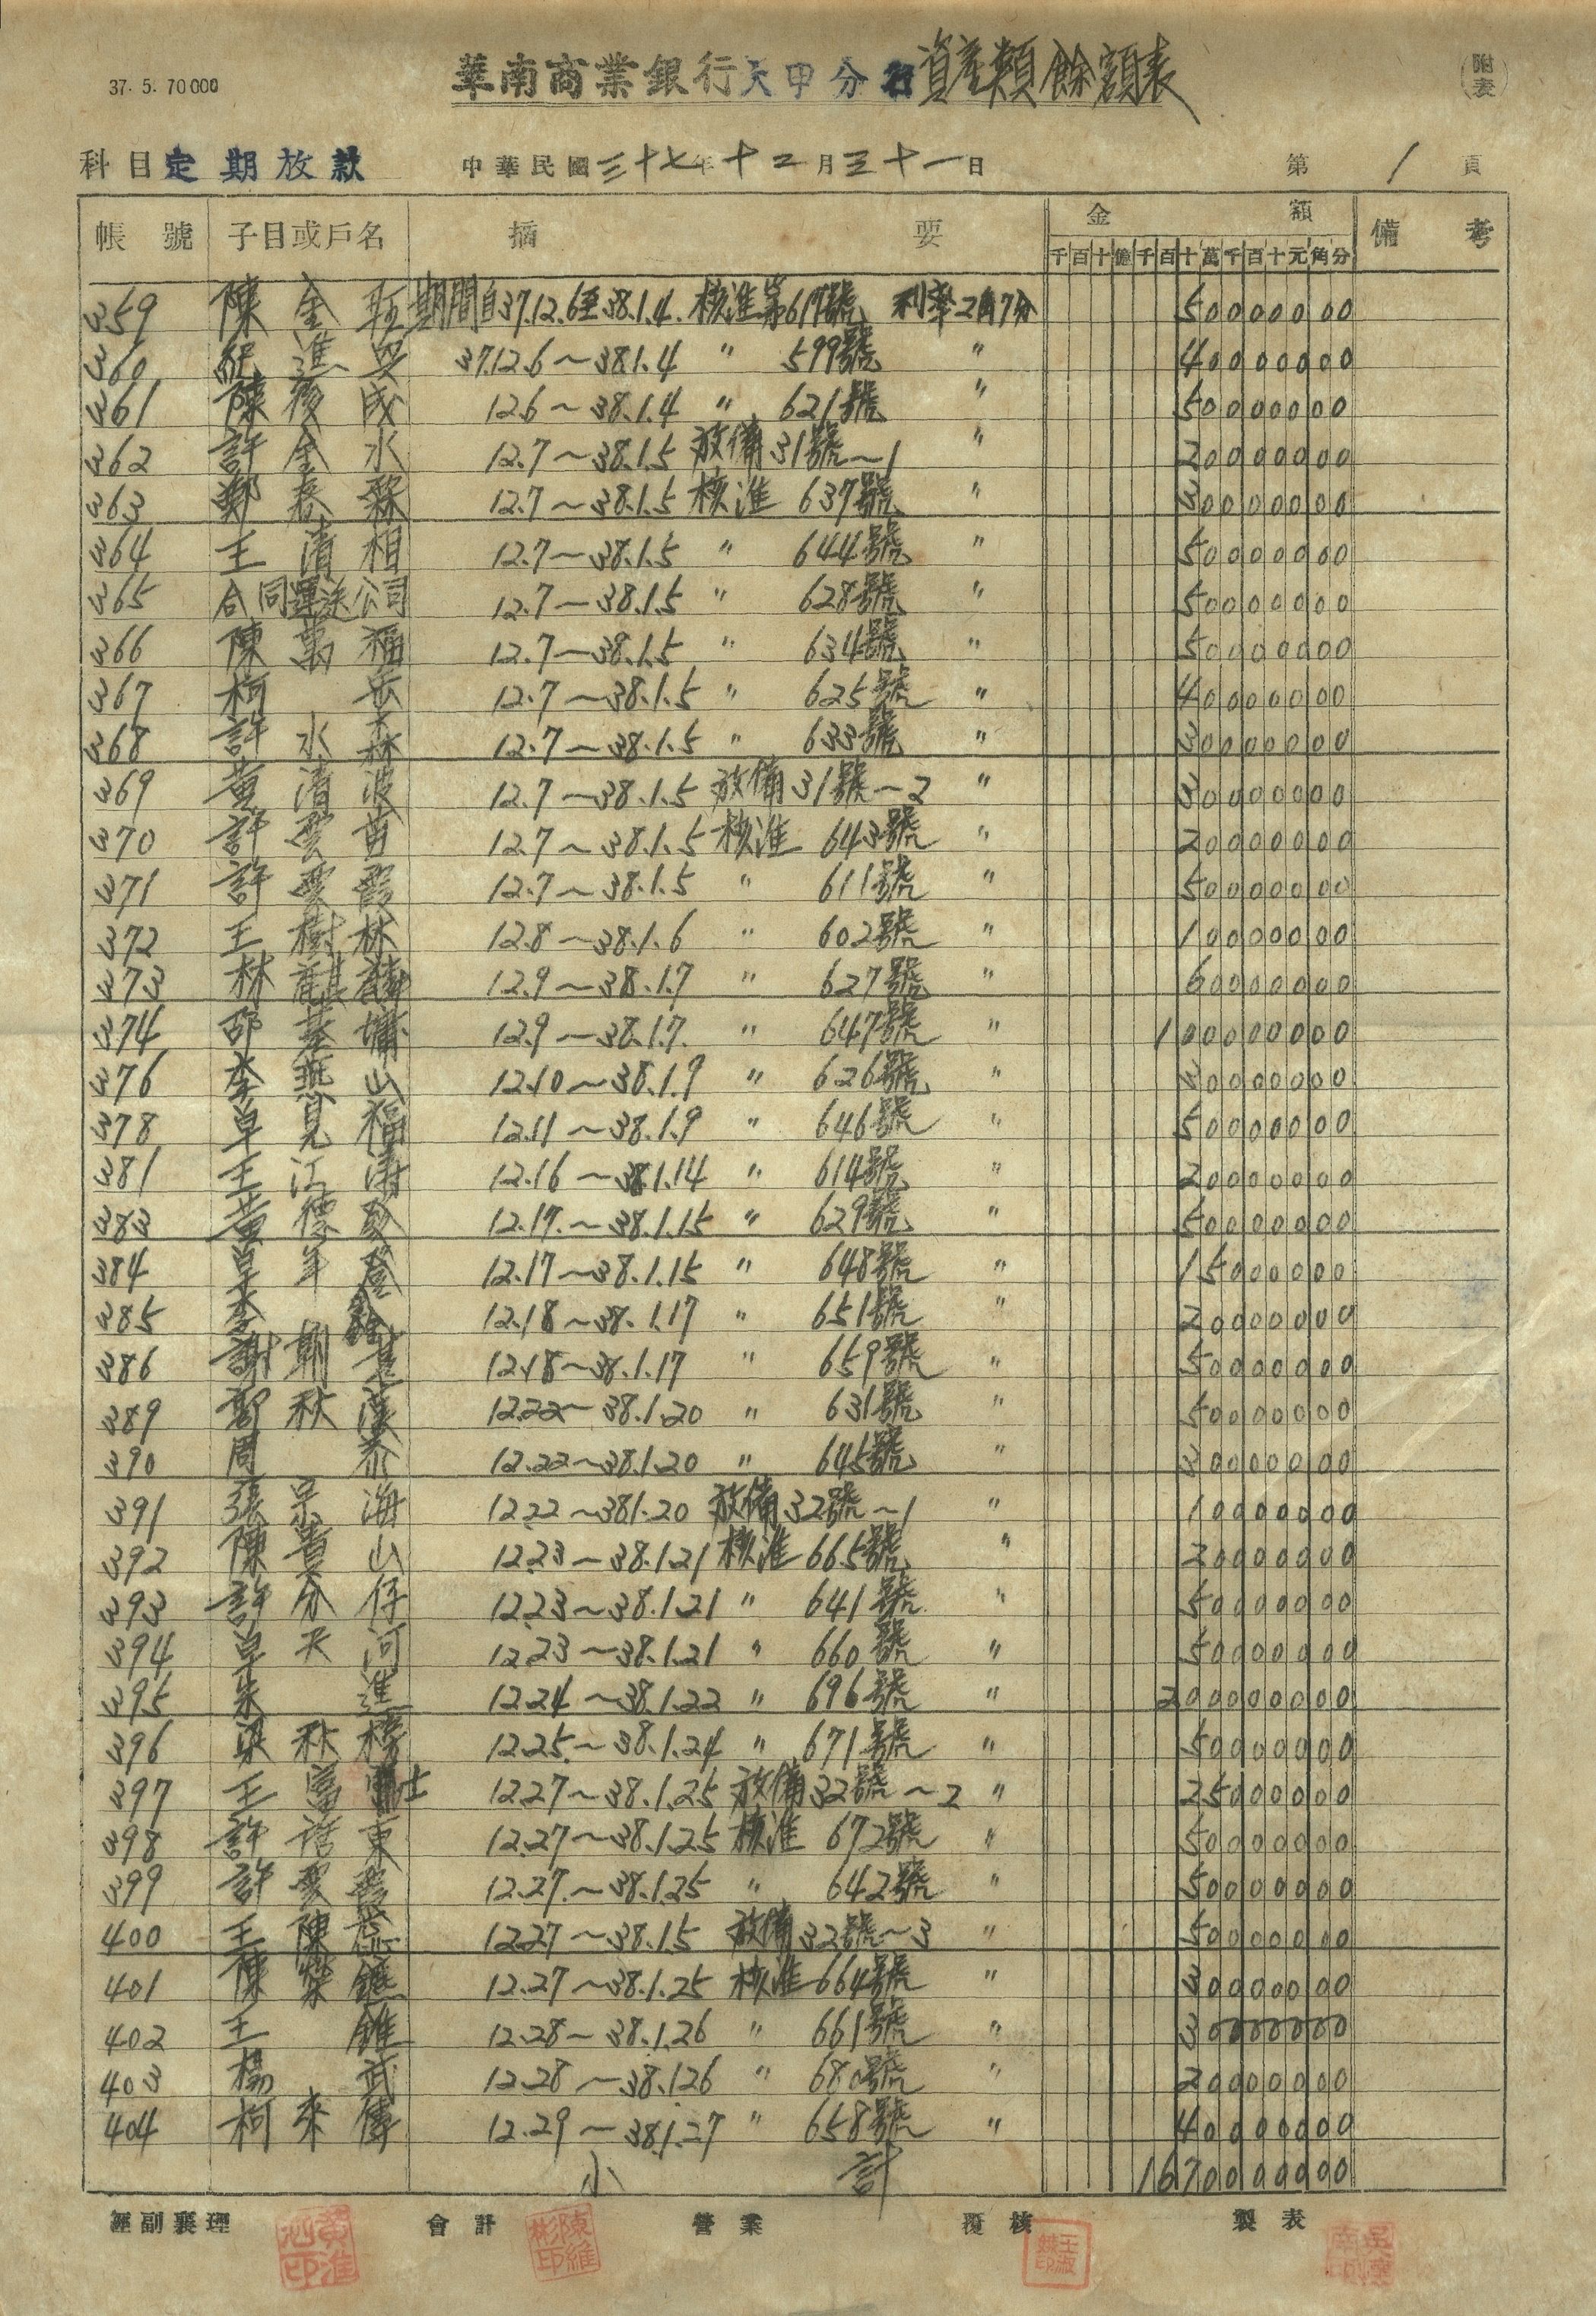 37. 5. 70000
華南商業銀行大甲分行資產類餘額表
附表
科目定期放款 中華民國三十七年十二月三十一日 第1頁
帳號 子目或戶名 摘要 金額 備考
千百十億千百十萬千百十元角分
359 陳金 期間自37.12.6至38.1.4. 核准第617號 利率2角7分 50000000
360 紀進 37.12.6~38.1.4 " 599號 " 40000000
361 陳後成 12.6~38.1.4 " 621號 " 50000000
362 許金水 12.7~38.1.5 放備31號~1 " 20000000
363 鄭春霖 12.7~38.1.5 核准 637號 " 30000000
364 王清相 12.7~38.1.5 " 644號 " 50000000
365 合同運送公司 12.7~38.1.5 " 628號 " 50000000
366 陳萬福 12.7~38.1.5 " 634號 " 50000000
367 柯岳 12.7~38.1.5 " 625號 " 40000000
368 許水森 12.7~38.1.5 " 633號 " 30000000
369 黃清波 12.7~38.1.5 放備31號~2 " 30000000
370 許雲苗 12.7~38.1.5 核准 643號 " 20000000
371 許雲霞 12.7~38.1.5 " 611號 " 50000000
372 王樹林 12.8~38.1.6 " 602號 " 10000000
373 林麒麟 12.9~38.1.7 " 627號 " 60000000
374 邵基墉 12.9~38.1.7. " 647號 " 100000000
376 李燕山 12.10~38.1.9 " 626號 " 30000000
378 卓見福 12.11~38.1.9 " 646號 " 50000000
381 王江 12.16~38.1.14 " 614號 " 20000000
383 黃德 12.17.~38.1.15 " 629號 " 50000000
384 卓年登 12.17~38.1.15 " 648號 " 15000000
385 李鑫 12.18~38.1.17 " 651號 " 20000000
386 謝朝基 12.18~38.1.17 " 659號 " 50000000
389 郭秋漢 12.22~38.1.20 " 631號 " 50000000
390 周泰 12.22~38.1.20 " 645號 " 30000000
391 張宗海 12.22~38.1.20 放備32號~1 " 10000000
392 陳貴山 12.23~38.1.21 核准 665號 " 20000000
393 許分仔 12.23~38.1.21 " 641號 " 50000000
394 卓天河 12.23~38.1.21 " 660號 " 50000000
395 朱進 12.24~38.1.22 " 696號 " 200000000
396 梁秋 12.25~38.1.24 " 671號 " 50000000
397 王富士 12.27~38.1.25 放備32號~2 " 25000000
398 許啓東 12.27~38.1.25 核准 672號 " 50000000
399 許雲霞 12.27.~38.1.25 " 642號 " 50000000
400 王陳蕊 12.27~38.1.5 放備32號~3 " 50000000
401 陳榮 12.27~38.1.25 核准 664號 " 30000000
402 王錐 12.28~38.1.26 " 661號 " 30000000
403 楊武 12.28~38.1.26 " 680號 " 20000000
404 柯來傳 12.29~38.1.27 " 658號 " 40000000
小計 1670000000
經副襄理 會計 營業 覆核 製表